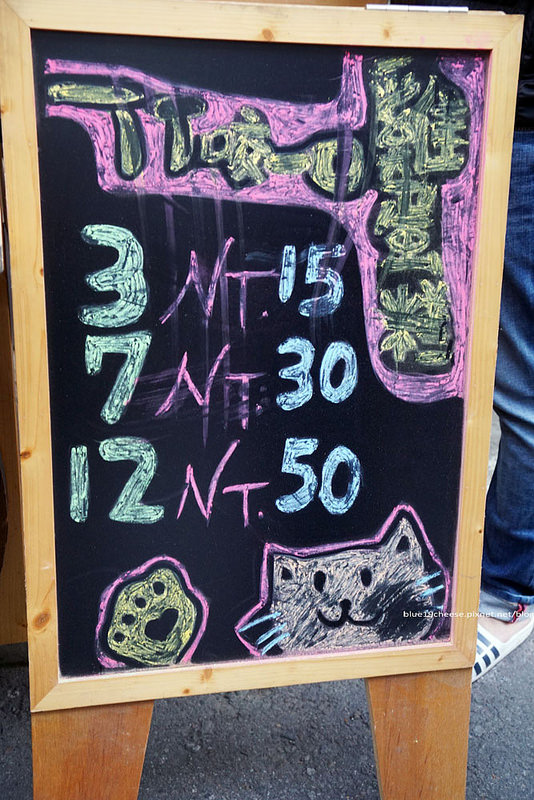 雞蛋糕
3 NT. 15
7 NT. 30
12 NT. 50
blue19cheese.pixnet.net/blog